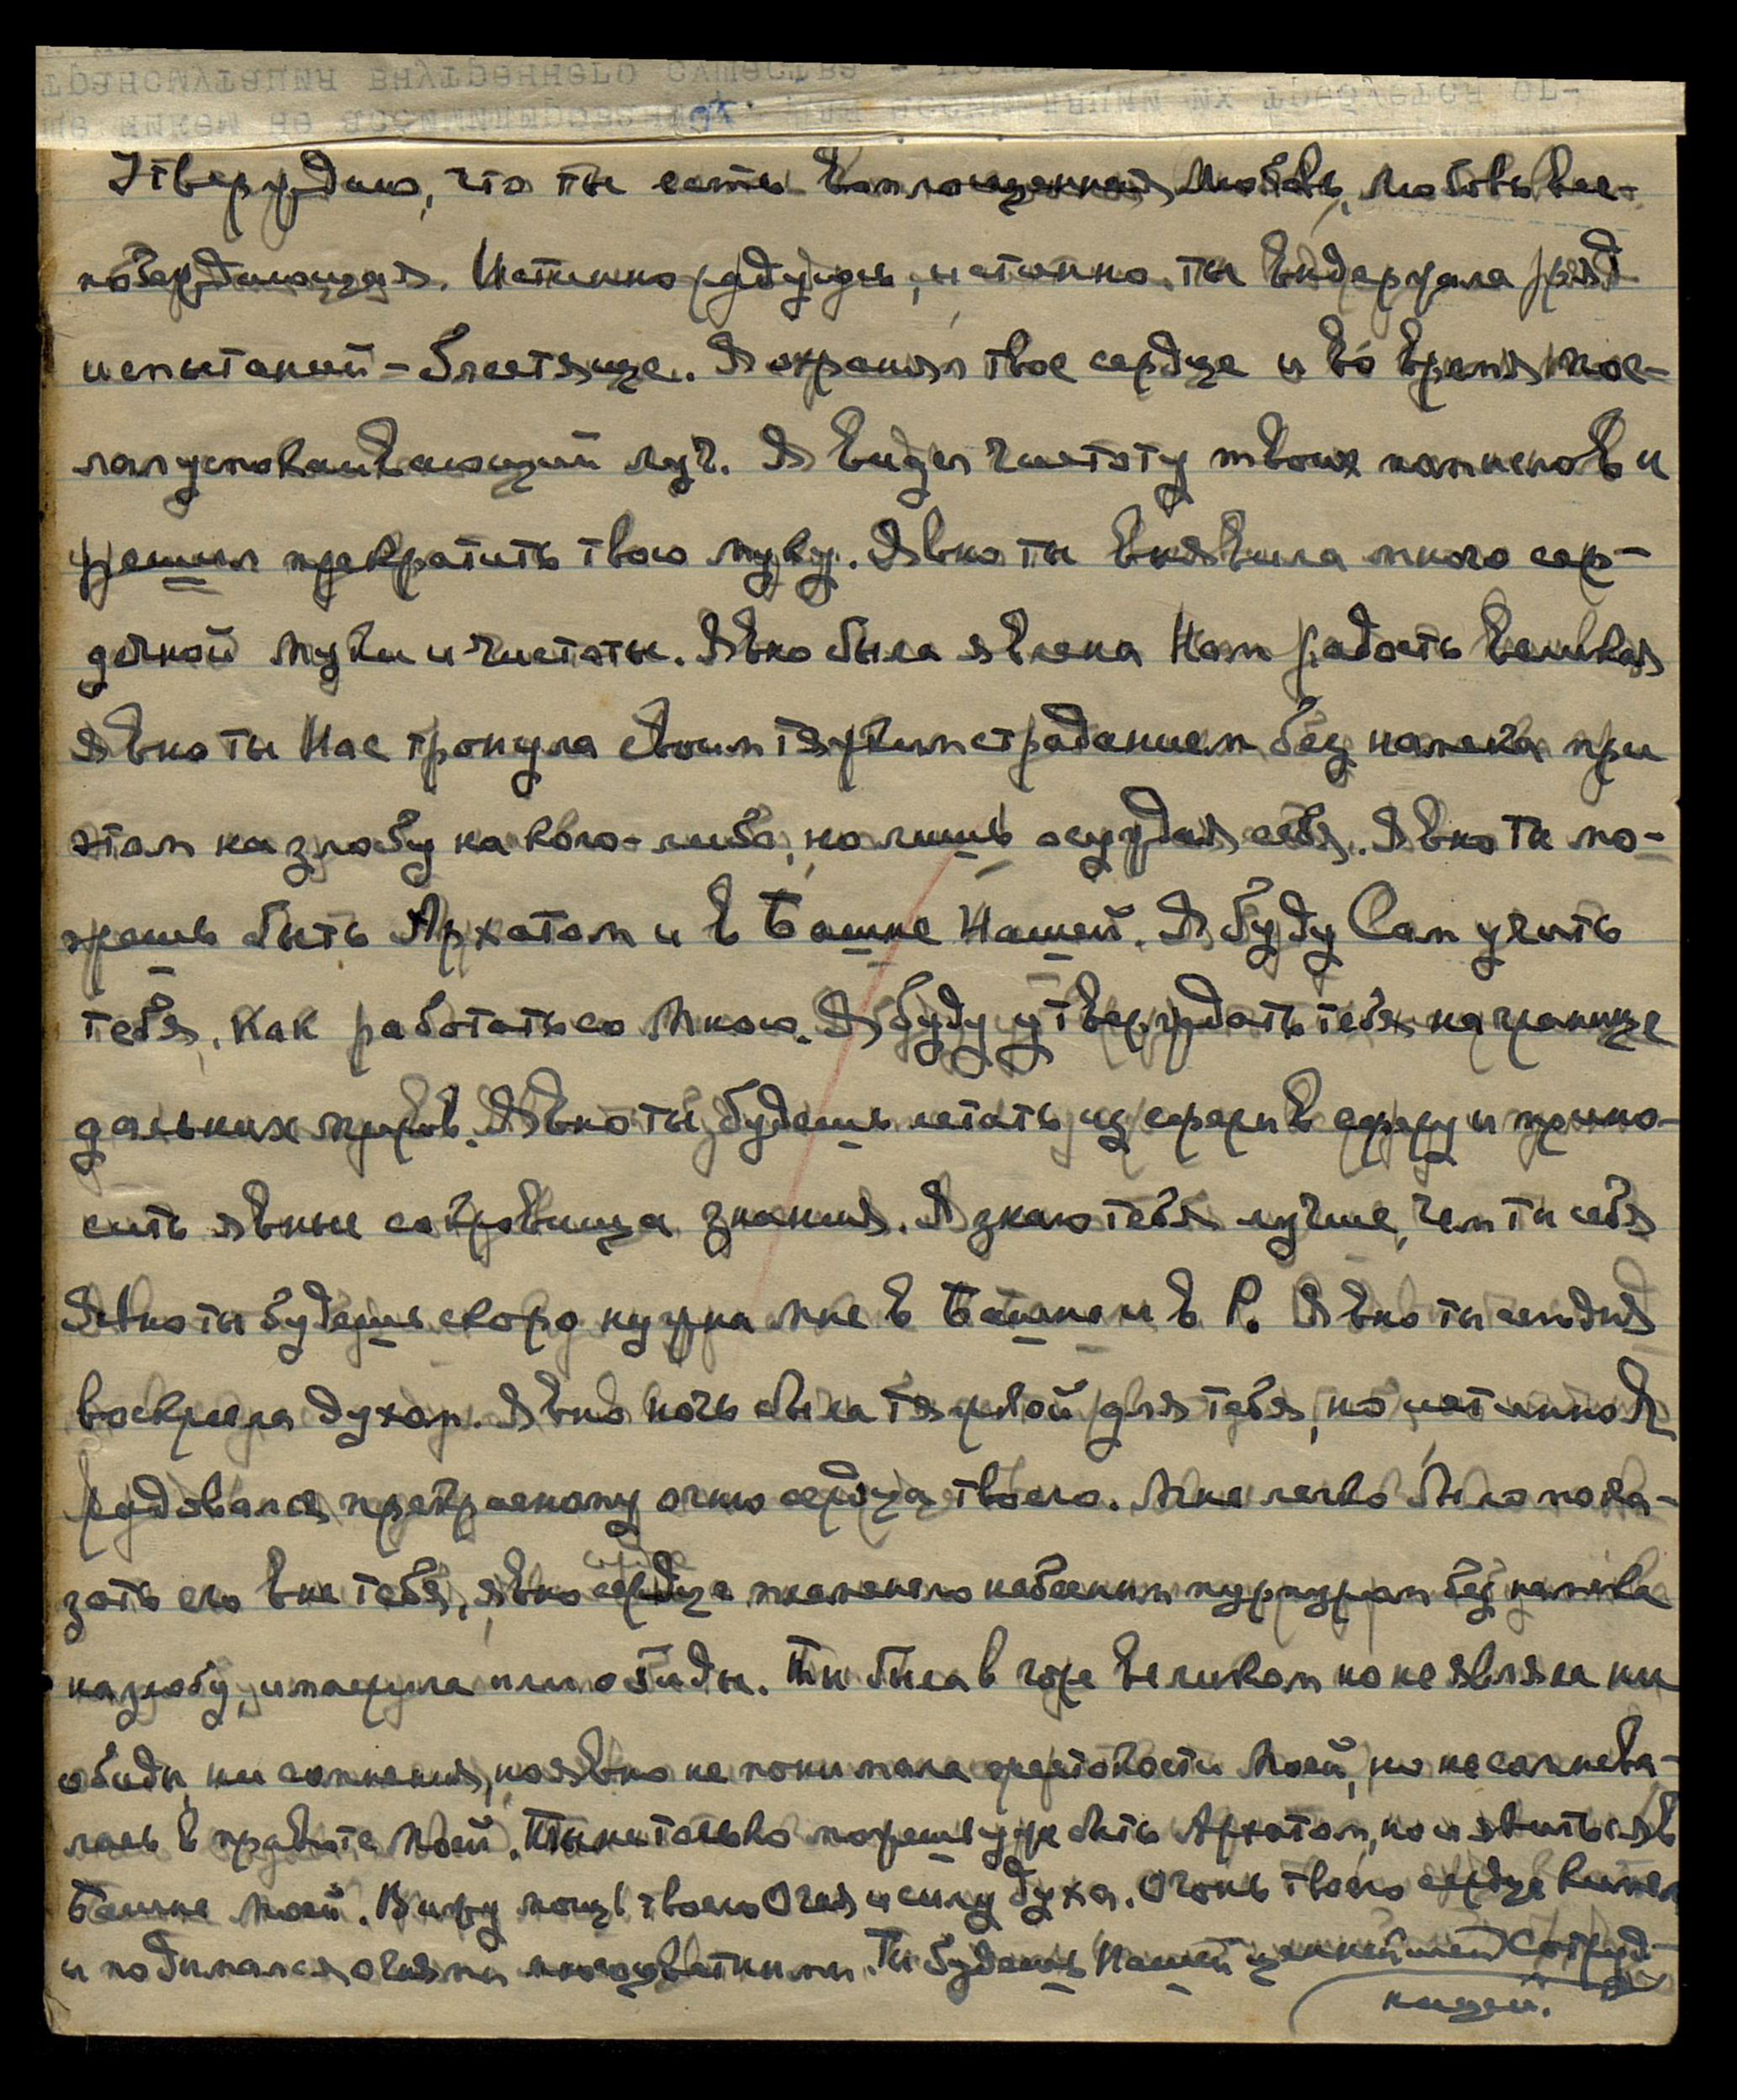 Утверждаю, что ты есть воплощенная Любовь, Любовь все-
побеждающая. Истинно радуюсь, истинно, ты выдержала ряд
испытаний - блестяще. Я охранял твое сердце и во время пос-
лал успокаивающий луч. Я видел чистоту твоих помыслов и
решил прекратить твою муку. Явно ты выявила много сер-
дечной муки и чистоты. Явно была явлена Нам радость великая
Явно ты Нас тронула своим тяжким страданием без намека при
этом на злобу на кого-либо, но лишь осуждая себя. Явно ты мо-
жешь быть Архатом и в Башне Нашей. Я буду Сам учить
тебя, как работать со Мною. Я буду утверждать тебя на границе
дальних миров. Явно ты будешь летать из сферы в сферу и прино-
сить явные сокровища знания. Я знаю тебя лучше, чем ты себя
Явно ты будешь скоро нужна мне в Башне и в Р. Явно ты сегодня
воскресла духом. Явно ночь была тяжкой для тебя, но истинно Я
радовался прекрасному огню сердца твоего. Мне легко было пока-
зать его вне тебя, явно сердце пламенело небесным пурпуром без намека
на злобу, или обиды. Ты была в горе великом но не являла ни
обиды, ни сомнения, но явно не понимала жестокости Моей, но не сомнева-
лась в правоте Моей. Ты не только можешь уже быть Архатом, но и явиться в
Башне Моей. Вижу мощь твоего Огня и силу духа. Огонь твоего сердца кипел
и подымался огнями многоцветными. Ты будешь Нашей ценнейшей Сотруд-
ницей.